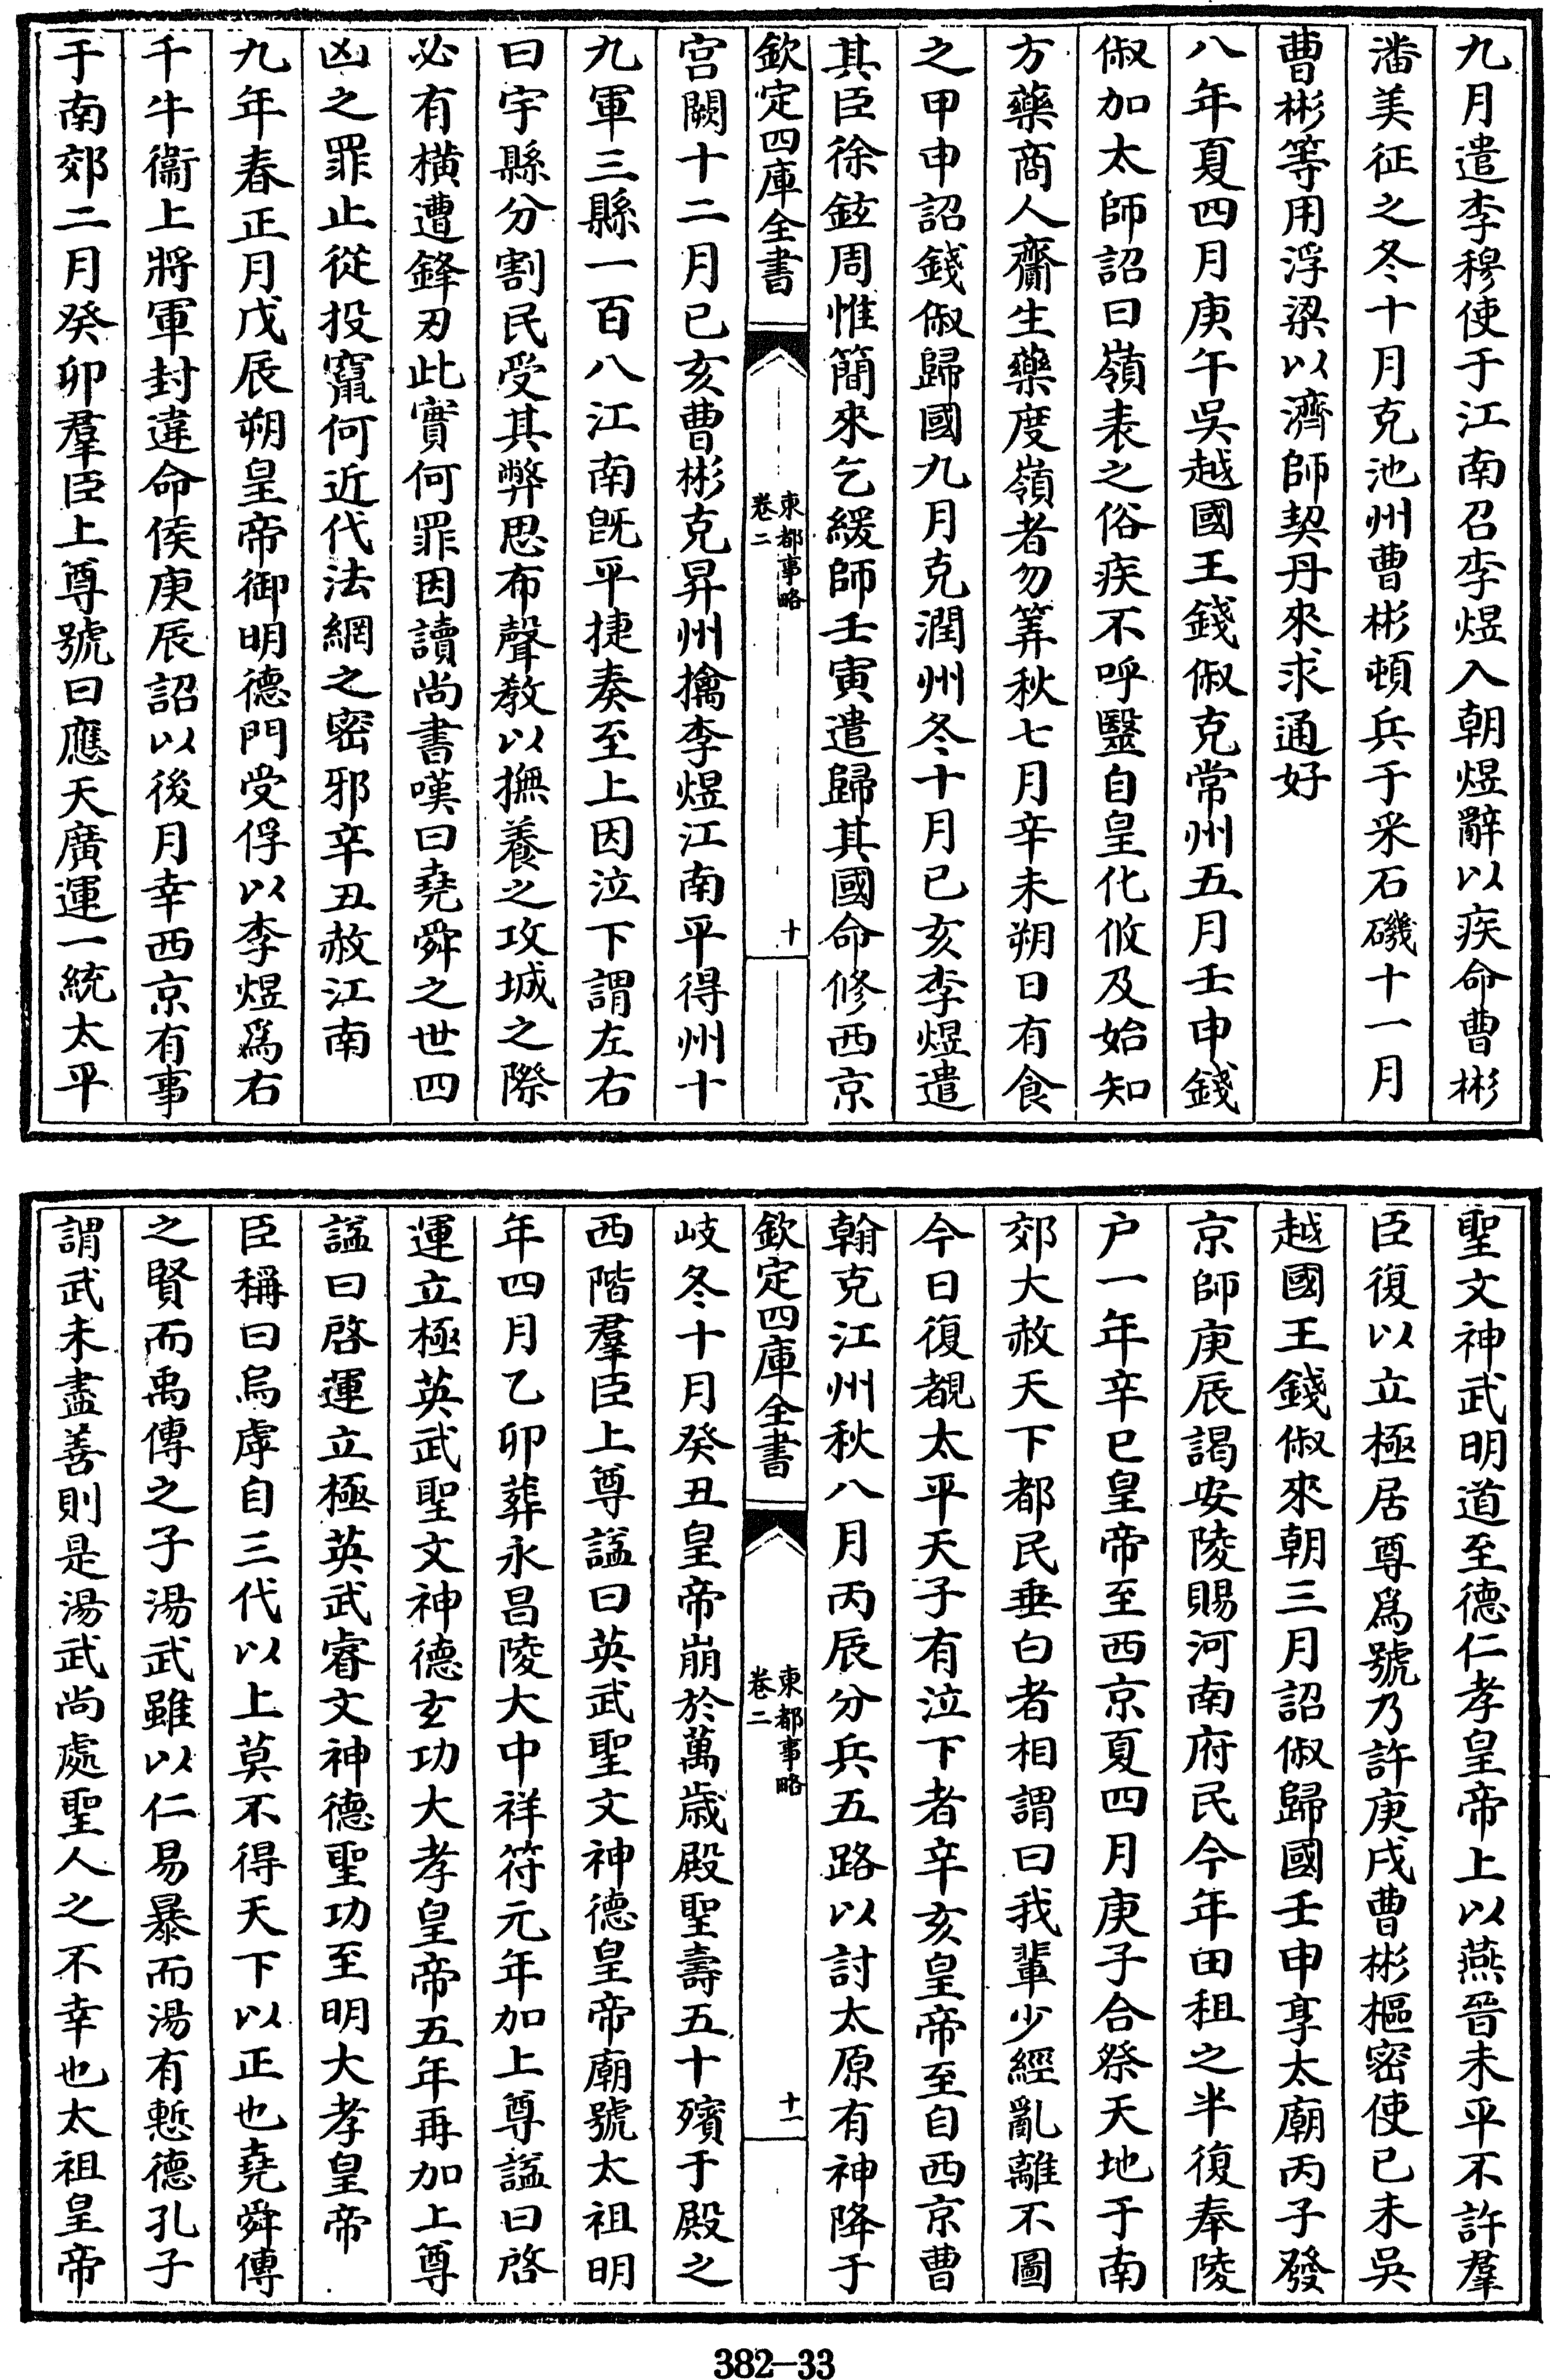 九月遣李穆使于江南召李煜入朝煜辭以疾命曹彬
潘美征之冬十月克池州曹彬頓兵于采石磯十一月
曹彬等用浮梁以濟師契丹來求通好
八年夏四月庚午吳越國王錢俶克常州五月壬申錢
俶加太師詔曰嶺表之俗疾不呼毉自皇化攸及始知
方藥商人齎生藥度嶺者勿筭秋七月辛未朔日有食
之甲申詔錢俶歸國九月克潤州冬十月已亥李煜遣
其臣徐鉉周惟簡來乞緩師壬寅遣歸其國命修西京
欽定四庫全書
東都事略
卷二
十
宫闕十二月已亥曹彬克昇州擒李煜江南平得州十
九軍三縣一百八江南旣平捷奏至上因泣下謂左右
曰宇縣分割民受其弊思布聲敎以撫養之攻城之際
必有横遭鋒刃此實何罪因讀尚書嘆曰堯舜之世四
凶之罪止從投竄何近代法網之密邪辛丑赦江南
九年春正月戊辰朔皇帝御明德門受俘以李煜爲右
千牛衞上將軍封違命侯庚辰詔以後月幸西京有事
于南郊二月癸卯羣臣上尊號曰應天廣運一統太平
聖文神武明道至德仁孝皇帝上以燕晉未平不許羣
臣復以立極居尊爲號乃許庚戌曹彬樞密使已未吳
越國王錢俶來朝三月詔俶歸國壬申享太廟丙子發
京師庚辰謁安陵賜河南府民今年田租之半復奉陵
户一年辛已皇帝至西京夏四月庚子合祭天地于南
郊大赦天下都民垂白者相謂曰我輩少經亂離不圖
今日復覩太平天子有泣下者辛亥皇帝至自西京曹
翰克江州秋八月丙辰分兵五路以討太原有神降于
欽定四庫全書
東都事略
卷二
十一
岐冬十月癸丑皇帝崩於萬歲殿聖壽五十殯于殿之
西階羣臣上尊諡曰英武聖文神德皇帝廟號太祖明
年四月乙卯葬永昌陵大中祥符元年加上尊諡曰啓
運立極英武聖文神德玄功大孝皇帝五年再加上尊
諡曰啓運立極英武睿文神德聖功至明大孝皇帝
臣稱曰烏虖自三代以上莫不得天下以正也堯舜傳
之賢而禹傳之子湯武雖以仁易暴而湯有慙德孔子
謂武未盡善則是湯武尚處聖人之不幸也太祖皇帝
382-33